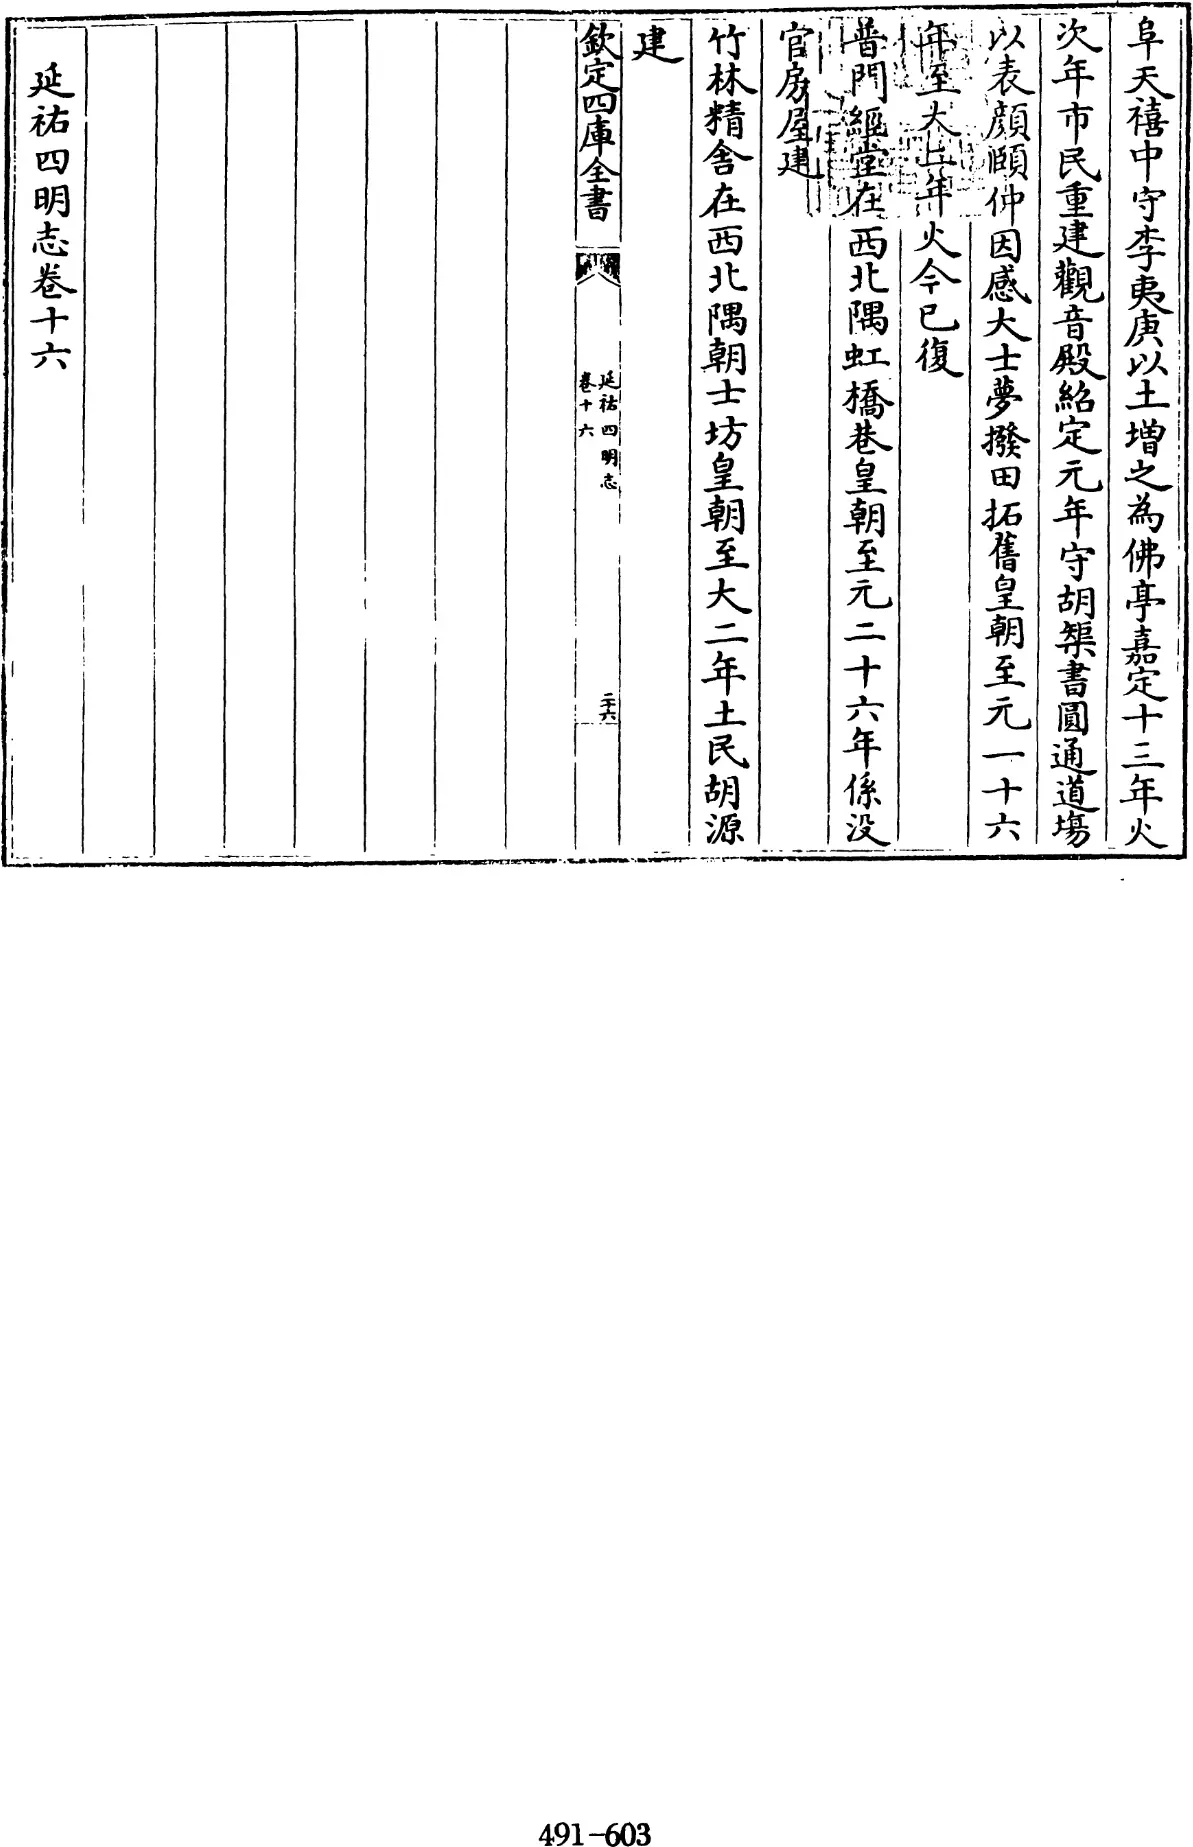 阜天禧中守李夷庚以土增之為佛亭嘉定十三年火
次年市民重建觀音殿紹定元年守胡榘書圓通道塲
以表顏頤仲因感大士夢撥田拓舊皇朝至元一十六
年至大二年火今已復
普門經堂在西北隅虹橋巷皇朝至元二十六年係没
官房屋建
竹林精舍在西北隅朝士坊皇朝至大二年土民胡源
建
欽定四庫全書
延祐四明志
卷十六
二十六
延祐四明志卷十六
491-603